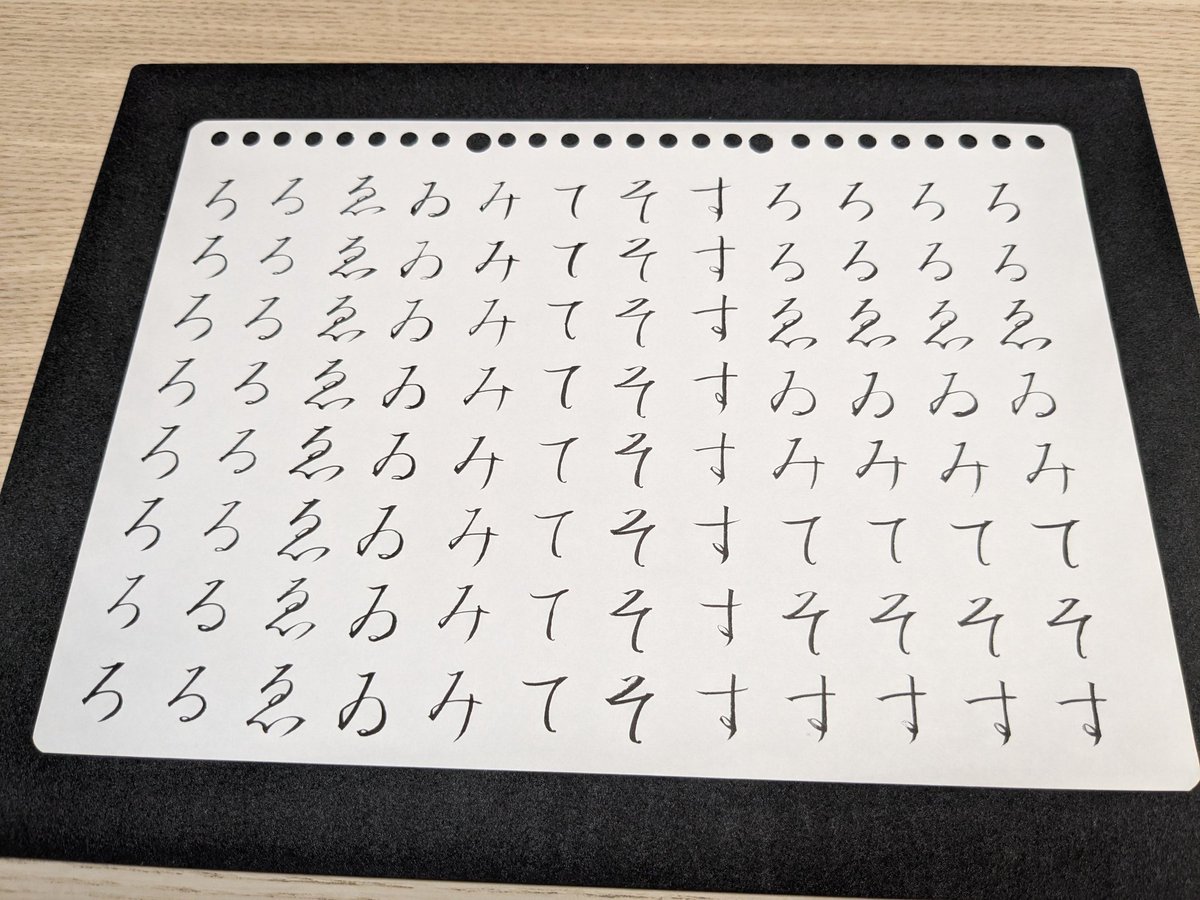 ろるゑゐみてそす
ろるゑゐみてそす
ろるゑゐみてそす
ろるゑゐみてそす
すすすすすすすす
そそそそそそそそ
てててててててて
みみみみみみみみ
ゐゐゐゐゐゐゐゐ
ゑゑゑゑゑゑゑゑ
るるるるるるるる
ろろろろろろろろ